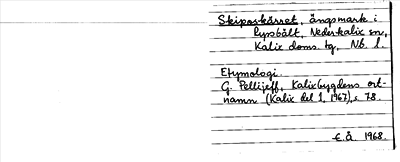 Skiposkärret, ängsmark i
Ryssbält, Nederkalix sn,
Kalix doms. hg, Nb. l.
Etymologi.
G. Pellijeff, Kalixbygdens ort-
namn (Kalix del 1, 1967), s. 78.
E.Å. 1968.